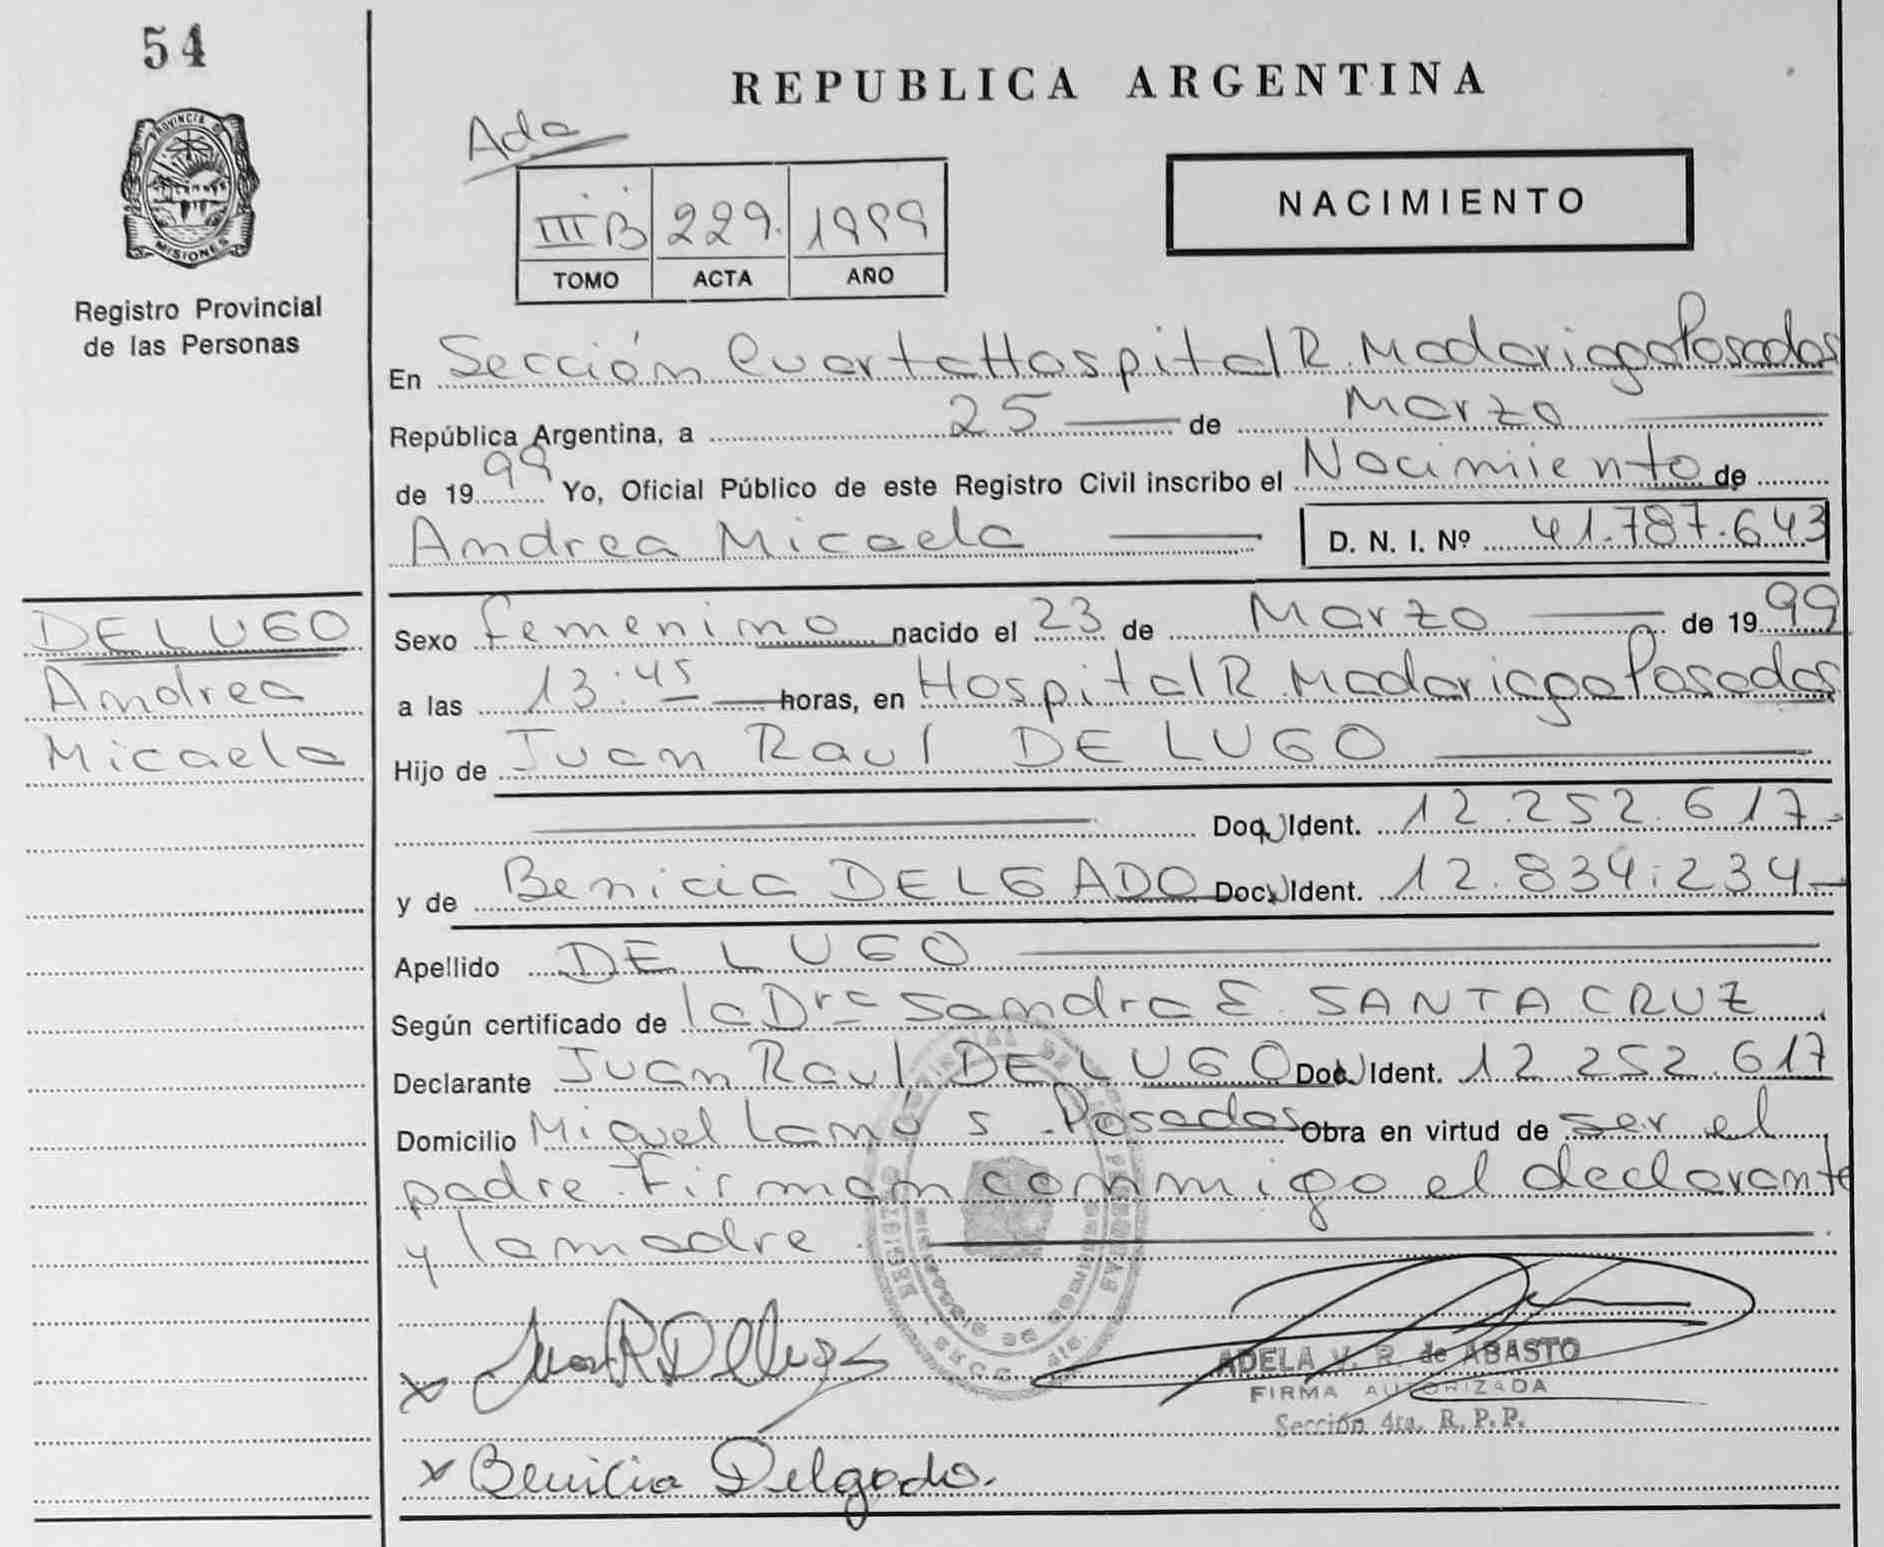 54
REPUBLICA ARGENTINA
Ada
PROVINCIA DE
MISIONES
NACIMIENTO
III B 229. 1999
TOMO ACTA AÑO
Registro Provincial
de las Personas
En Sección Cuarta Hospital R. Madariaga Posadas
República Argentina, a 25 de Marzo
de 1999 Yo, Oficial Público de este Registro Civil inscribo el Nacimiento de
Andrea Micaela D. N. I. Nº 41.787.643
DE LUGO
Andrea
Micaela
Sexo femenino nacido el 23 de Marzo de 1999
a las 13:45 horas, en Hospital R. Madariaga Posadas
Hijo de Juan Raul DE LUGO
Doc. Ident. 12.252.617-
y de Benicia DELGADO Doc. Ident. 12.834.234-
Apellido DE LUGO
Según certificado de la Dra Sandra E. SANTA CRUZ
Declarante Juan Raul DE LUGO Doc. Ident. 12.252.617
Domicilio Miguel Lanús. Posadas Obra en virtud de ser el
padre. Firman conmigo el declarante
y la madre.
x Juan R De Lugo
ADELA V. R. de ABASTO
FIRMA AUTORIZADA
Sección 4ta. R. P. P.
x Benicia Delgado.